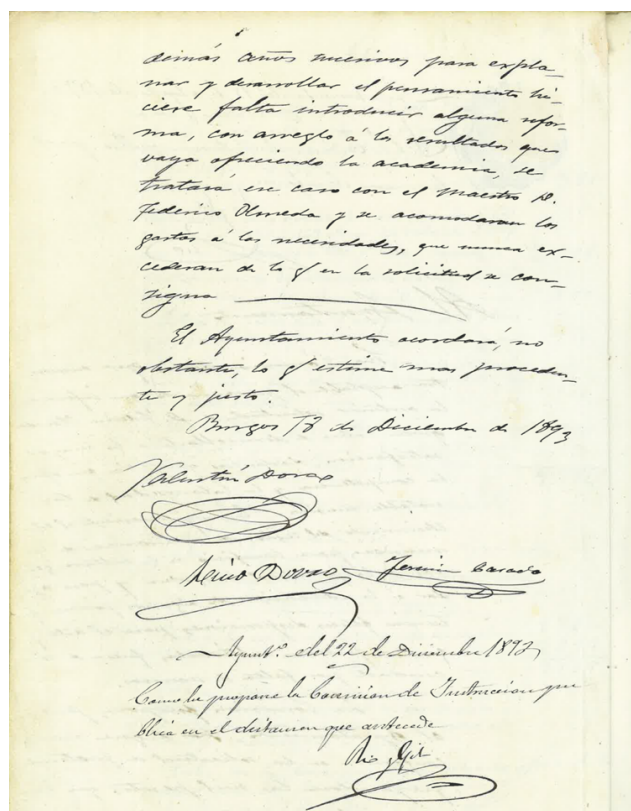 demás años sucesivos para expla-
nar y desarrollar el pensamiento hi-
ciere falta introducir alguna refor-
ma, con arreglo á los resultados que
vaya ofreciendo la academia, se
tratará ese caso con el Maestro D.
Federico Olmeda y se acomodaran los
gastos á las necesidades, que nunca ex-
cederan de lo q/ en la solicitud se con-
signa
El Ayuntamiento acordará, no
obstante, lo q/ estime mas proceden-
te y justo.
Burgos 18 de Diciembre de 1893
Valentín Dorao
Dorao Fermín Casado
Ayunt.º del 22 de Diciembre 1893
Como lo propone la Comisión de Instrucción pu
blica en el dictamen que antecede
Gil